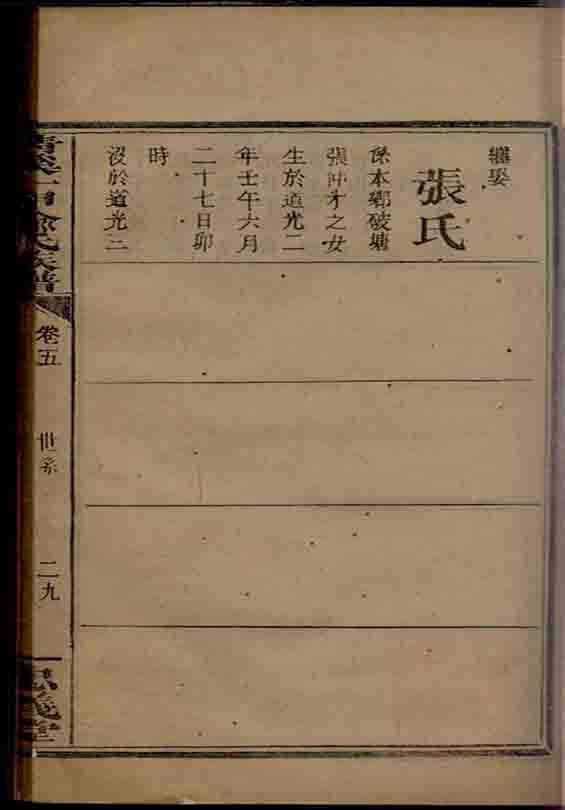 繼娶
張氏
係本鄉破塘
張仲才之女
生於道光二
年壬午六月
二十七日卯
時
沒於道光二
氏族譜
卷五
世系
二九
義堂